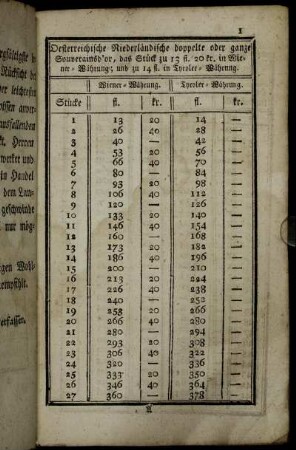 1
Oesterreichische Niederländische doppelte oder ganze
Souverainsd'or, das Stück zu 13 fl. 20 kr. in Wie-
ner-Währung; und zu 14 fl. in Tyroler-Währung.
Wiener-Währung. Tyroler-Währung.
Stücke fl. kr. fl. kr.
1 13 20 14 —
2 26 40 28 —
3 40 — 42 —
4 53 20 56 —
5 66 40 70 —
6 80 — 84 —
7 93 20 98 —
8 106 40 112 —
9 120 — 126 —
10 133 20 140 —
11 146 40 154 —
12 160 — 168 —
13 173 20 182 —
14 186 40 196 —
15 200 — 210 —
16 213 20 224 —
17 226 40 238 —
18 240 — 252 —
19 253 20 266 —
20 266 40 280 —
21 280 — 294 —
22 293 20 308 —
23 306 40 322 —
24 320 — 336 —
25 333 20 350 —
26 346 40 364 —
27 360 — 378 —